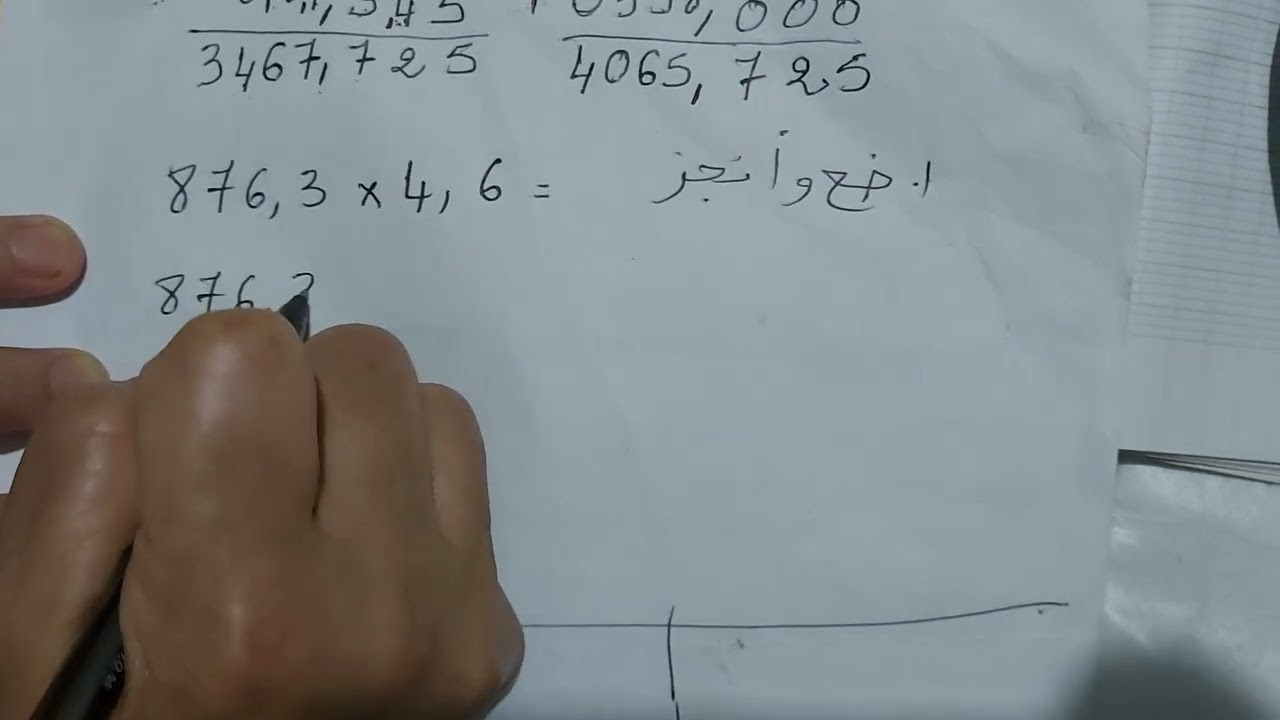 3467,725 4065,725
876,3 x 4,6 = .ا ضع و أنجز
876,3